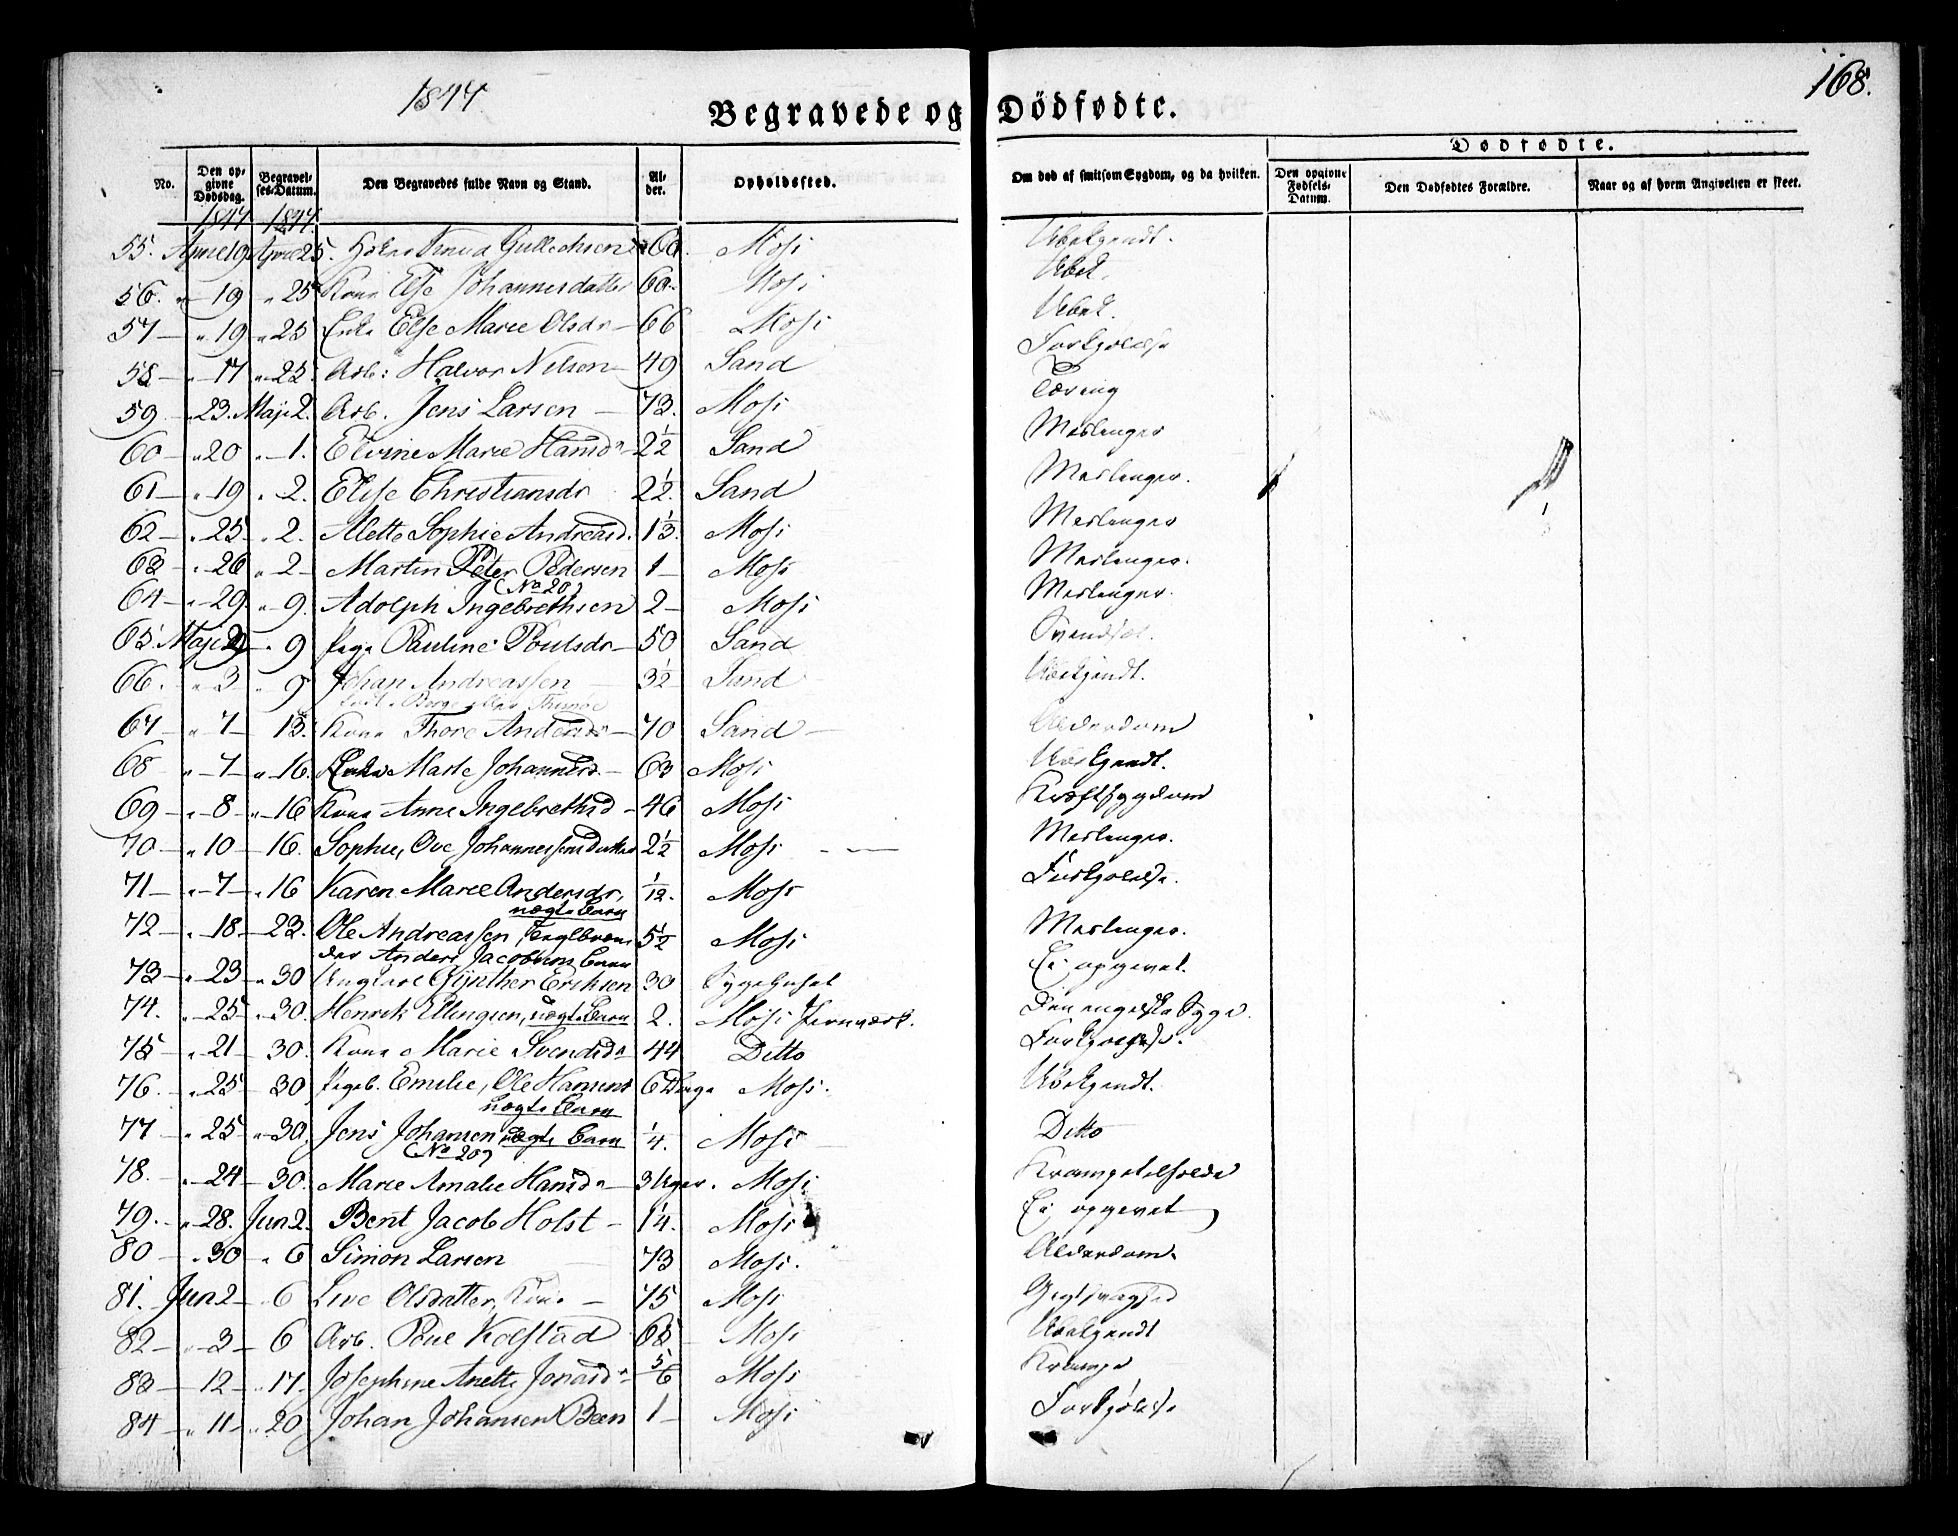 1844
168.
Begravede og Dödfødte.
Dødfødte.
No. Den opgivne Dødsdag. Begravelses-Datum. Den Begravedes fulde Navn og Stand. Alder. Opholdssted. Om død af smitsom Sygdom, og da hvilken. Den opgivne Fødsels-Datum. Den Dødfødtes Forældre. Naar og af hvem Angivelsen er skeet.
1844 1844.
55. April 19 April 25. Gullichsen 60. Moss Ubekjendt.
56. " 19 " 25 Kone Else Johannesdatter 60. Moss Ubek.
57 " 19 " 25 Enke Else Marie Olsdr 66 Moss Ubek.
58 " 17 " 25. Arb: Halvor Nilsen 49 Sand Forkjølelse
59 " 23. Maji 2. Arb. Jens Larsen 73. Moss Tæring
60 " 20 " 1. Elvine Marie Hansd 2½ Sand Meslinger
61 " 19 " 2. Else Christiansdr 2½. Sand Meslinger.
62 " 25 " 2. Alette Sophie Andreasd. 1⅓. Moss Meslinger
63 " 26 " 2 Martin Peter Pedersen 1 Moss Meslinger.
(No 20)
64 " 29 " 9. Adolph Ingebrethsen 2 Moss Meslinger.
65 Maji 2 " 9 Pige Pauline Poulsdr 50 Sand
66. " 3 " 9 Johan Andreassen 3½ Sand Ubekjendt.
67 " 7 13. Kone Thore Andersdr 70 Sand Alderdom
68 " 7 " 16. Enke Marte Johannesd. 63 Moss Ubekjendt.
69 " 8 " 16 Kone Anne Ingebrethsd 46 Moss Kræftsygdom
70 " 10 16. Sophie, Ove Johannessens Datter 2½ Moss Meslinger.
71 " 7 " 16 Karen Marie Andersdr, 1/12. Moss Forkjølelse.
uægte Barn
72 " 18 23. Ole Andreassen, 5½ Moss Meslinger.
Anders Jacobsens Barn
73 " 23 " 30 Ungkarl Gÿnther Eriksen 30 Sygehuset Ei opgivet.
74. " 25 " 30. Henrik Ellingsen, uægte Barn 2. Moss Jernværk. Den engelske Syge.
75 " 21 30. Kone Marie Svendsd 44 Ditto Forkjølelse.
76. " 25 30 Pigeb. Emilie, Ole Hansens 6 Dage Moss. Ubekjendt.
uægte Barn
77 " 25 " 30. Jens Johansen uægte Barn ¼. Moss Ditto
(No 20)
78. " 24 30. Marie Amalie Hansd 3 Uger. Moss Krampetilfælde
79. " 28. Jun 2. Bent Jacob Holst 1¼. Moss Ei opgivet
80 " 30 " 6 Simon Larsen 73 Moss. Alderdom.
81. Jun 2 " 6 Live Olsdatter, Kone 75 Moss Gigtsvaghed
82 " 3 6 Arb. Poul Kolstad 68 Moss Ubekjendt
83 12 " 17. Josephine Anette Jonasd 5/6 Moss Krampe
84 " 11 " 20. Johan Johansen Been 1 Moss Forkjølelse